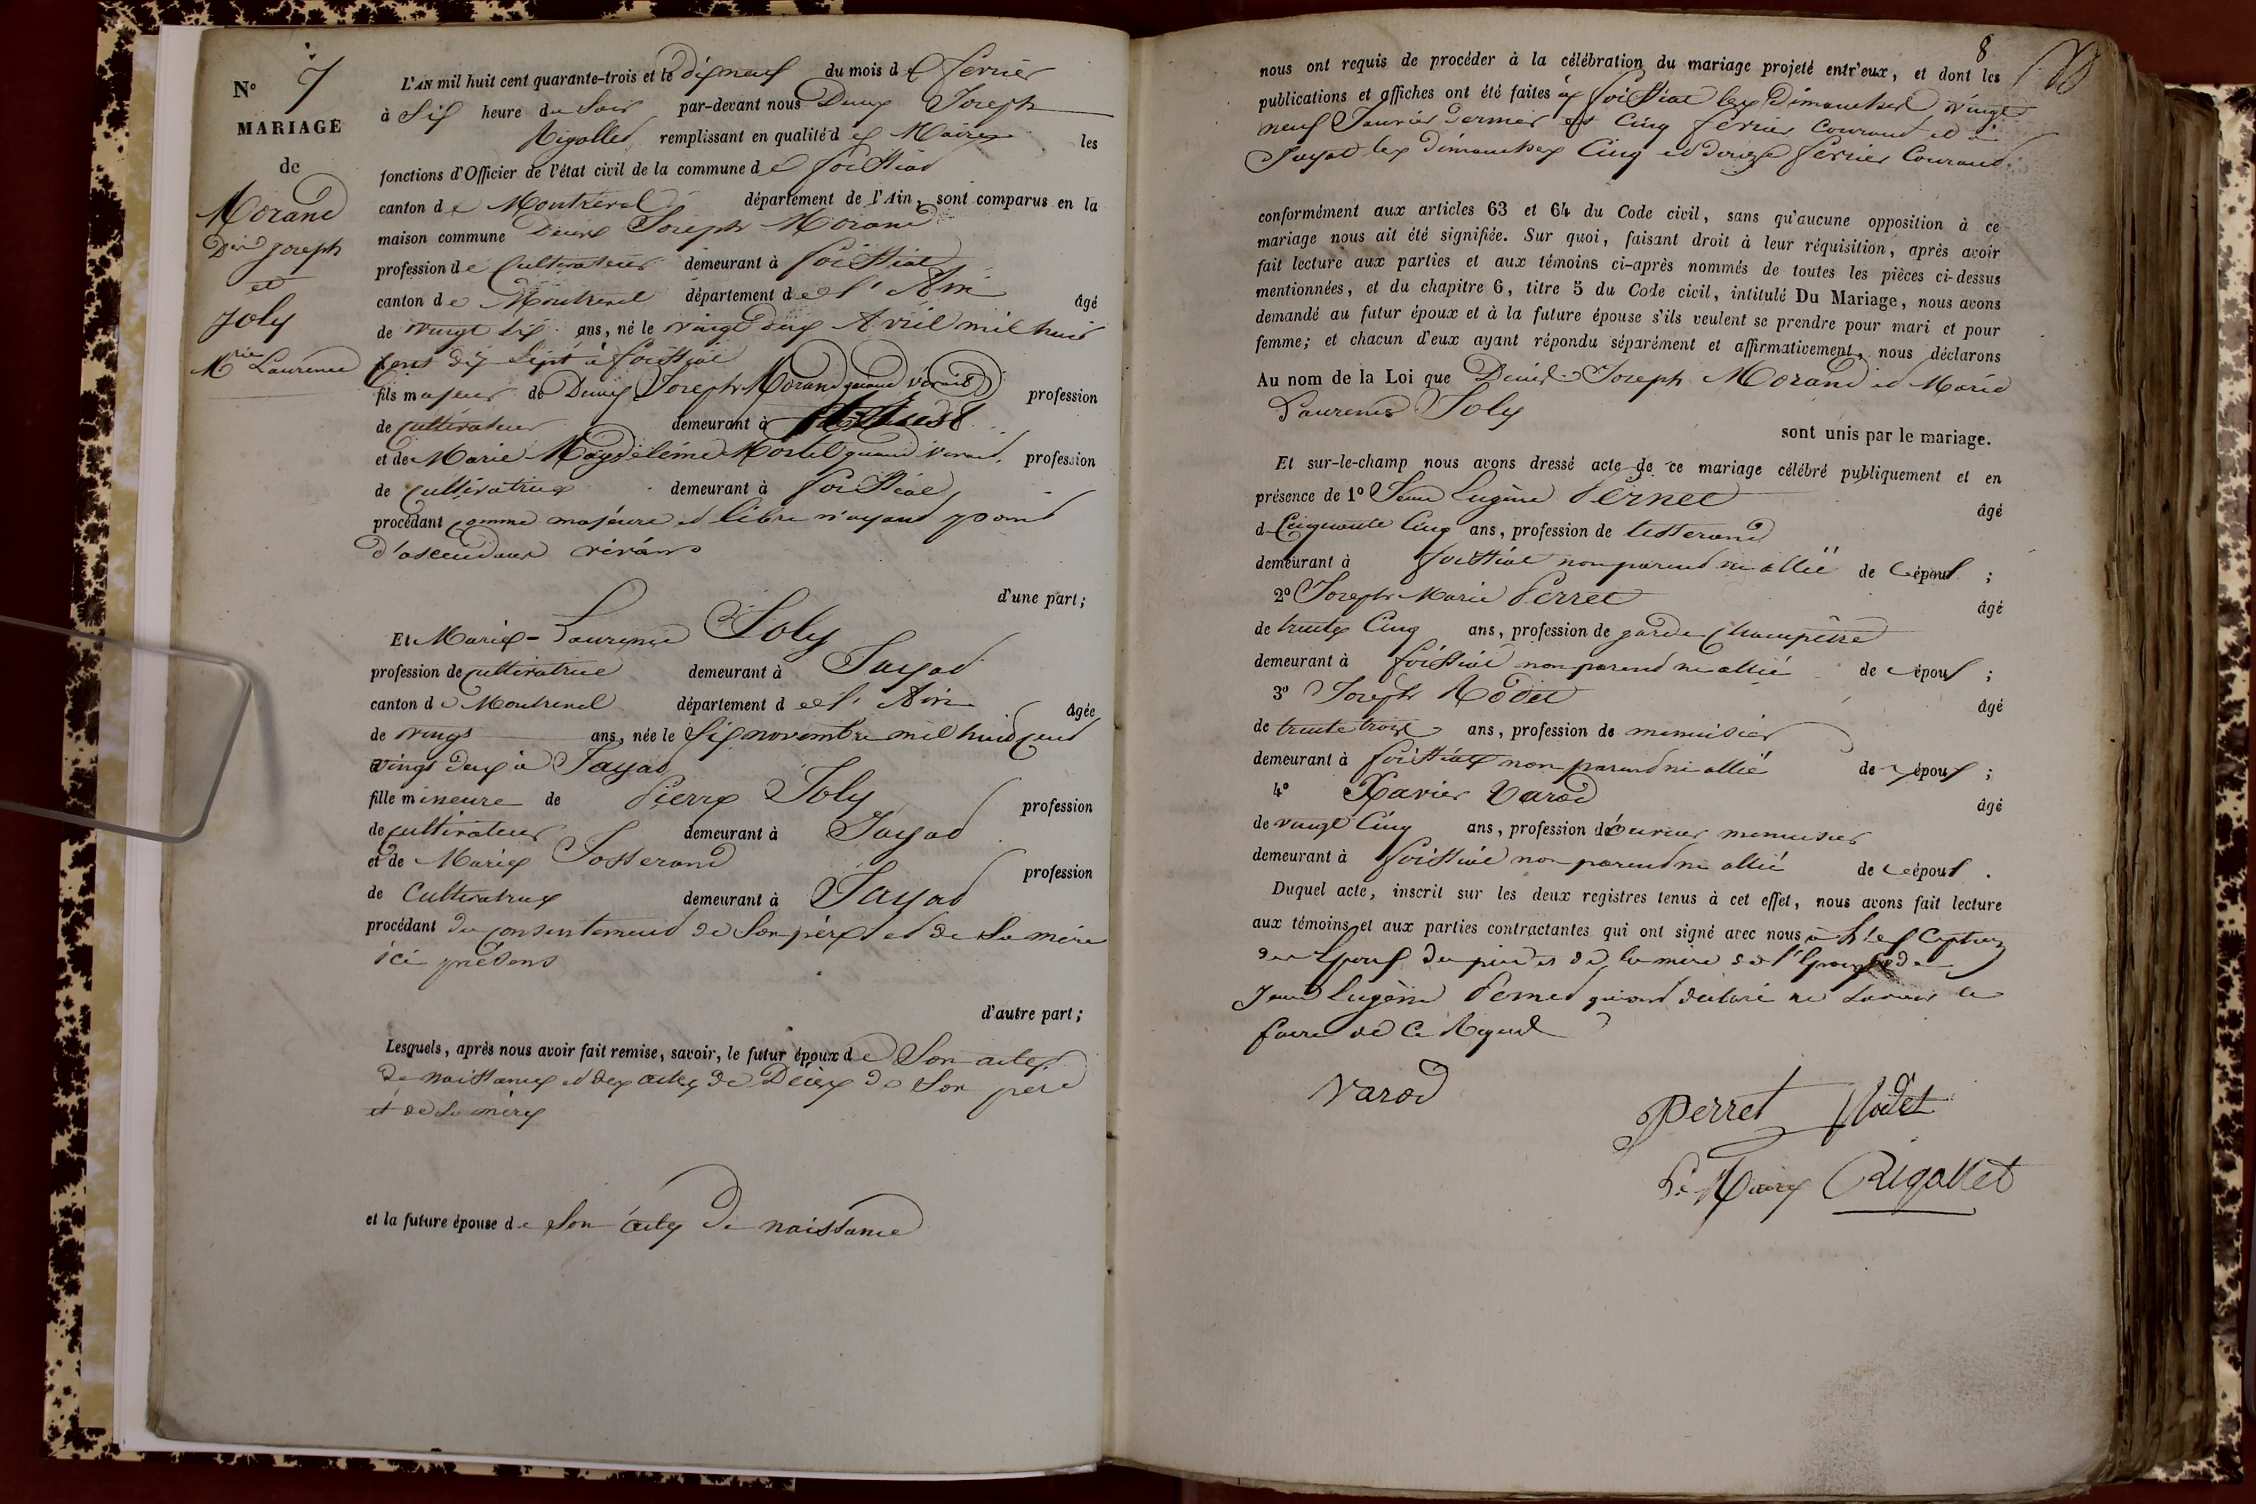 N° 7
MARIAGE
de
Morand
Denis Joseph
et
Joly
Mrie Laurence
L'AN mil huit cent quarante-trois et le dix neuf du mois de fevrier
à Six heure du Soir par-devant nous Denis Joseph
Rigollet remplissant en qualité de Maire les
fonctions d'Officier de l'état civil de la commune de foissiat
canton de Montrevel département de l'Ain, sont comparus en la
maison commune Denis Joseph Morand
profession de Cultivateur demeurant à foissiat
canton de Montrevel département de l'Ain âgé
de vingt six ans, né le vingt deux Avril mil huit
Cent dix Sept à foissiat
fils majeur de Denis Joseph Morand quand vivait profession
de Cultivateur demeurant à
et de Marie Magdeleine quand vivait profession
de Cultivatrice demeurant à foissiat
procédant comme majeure et libre n'ayant point
d'ascendans vivans
d'une part;
Et Marie-Laurence Joly
profession de cultivatrice demeurant à Jayat
canton de Montrevel département de l'Ain âgée
de vingt ans, née le Six novembre mil huit Cent
vingt deux à Jayat
fille mineure de Pierre Joly profession
de cultivateur demeurant à Jayat
et de Marie Josserand profession
de Cultivatrice demeurant à Jayat
procédant du consentement de Son père et de Sa mère
ici présens
d'autre part;
Lesquels, après nous avoir fait remise, savoir, le futur époux de Son acte
de naissance et des actes de Décès de Son père
et de Sa mère
et la future épouse de Son acte de naissance
8
nous ont requis de procéder à la célébration du mariage projeté entr'eux, et dont les
publications et affiches ont été faites à foissiat les Dimanches vingt
neuf Janvier dernier et Cinq fevrier Courant et à
Jayat les dimanches Cinq et douze fevrier Courant
conformément aux articles 63 et 64 du Code civil, sans qu'aucune opposition à ce
mariage nous ait été signifiée. Sur quoi, faisant droit à leur réquisition, après avoir
fait lecture aux parties et aux témoins ci-après nommés de toutes les pièces ci-dessus
mentionnées, et du chapitre 6, titre 5 du Code civil, intitulé Du Mariage, nous avons
demandé au futur époux et à la future épouse s'ils veulent se prendre pour mari et pour
femme; et chacun d'eux ayant répondu séparément et affirmativement, nous déclarons
Au nom de la Loi que Denis-Joseph Morand et Marie
Laurence Joly
sont unis par le mariage.
Et sur-le-champ nous avons dressé acte de ce mariage célébré publiquement et en
présence de 1° Jean Eugène Pernet âgé
de Cinquante Cinq ans, profession de tisserand
demeurant à foissiat non parent ni allié de époux ;
2° Joseph Marie Perret âgé
de trente Cinq ans, profession de garde Champêtre
demeurant à foissiat non parent ni allié de époux ;
3° Joseph Rodet âgé
de trente trois ans, profession de menuisier
demeurant à foissiat non parent ni allié de époux ;
4° Xavier Varod âgé
de vingt Cinq ans, profession d'ouvrier menuisier
demeurant à foissiat non parent ni allié de époux .
Duquel acte, inscrit sur les deux registres tenus à cet effet, nous avons fait lecture
aux témoins et aux parties contractantes qui ont signé avec nous à
des Epoux du père et de la mère de l'Epouse et de
Jean Eugène Pernet qui ont déclaré ne Savoir le
faire de Ce Requis
Varod
Perret Rodet
Le Maire Rigollet